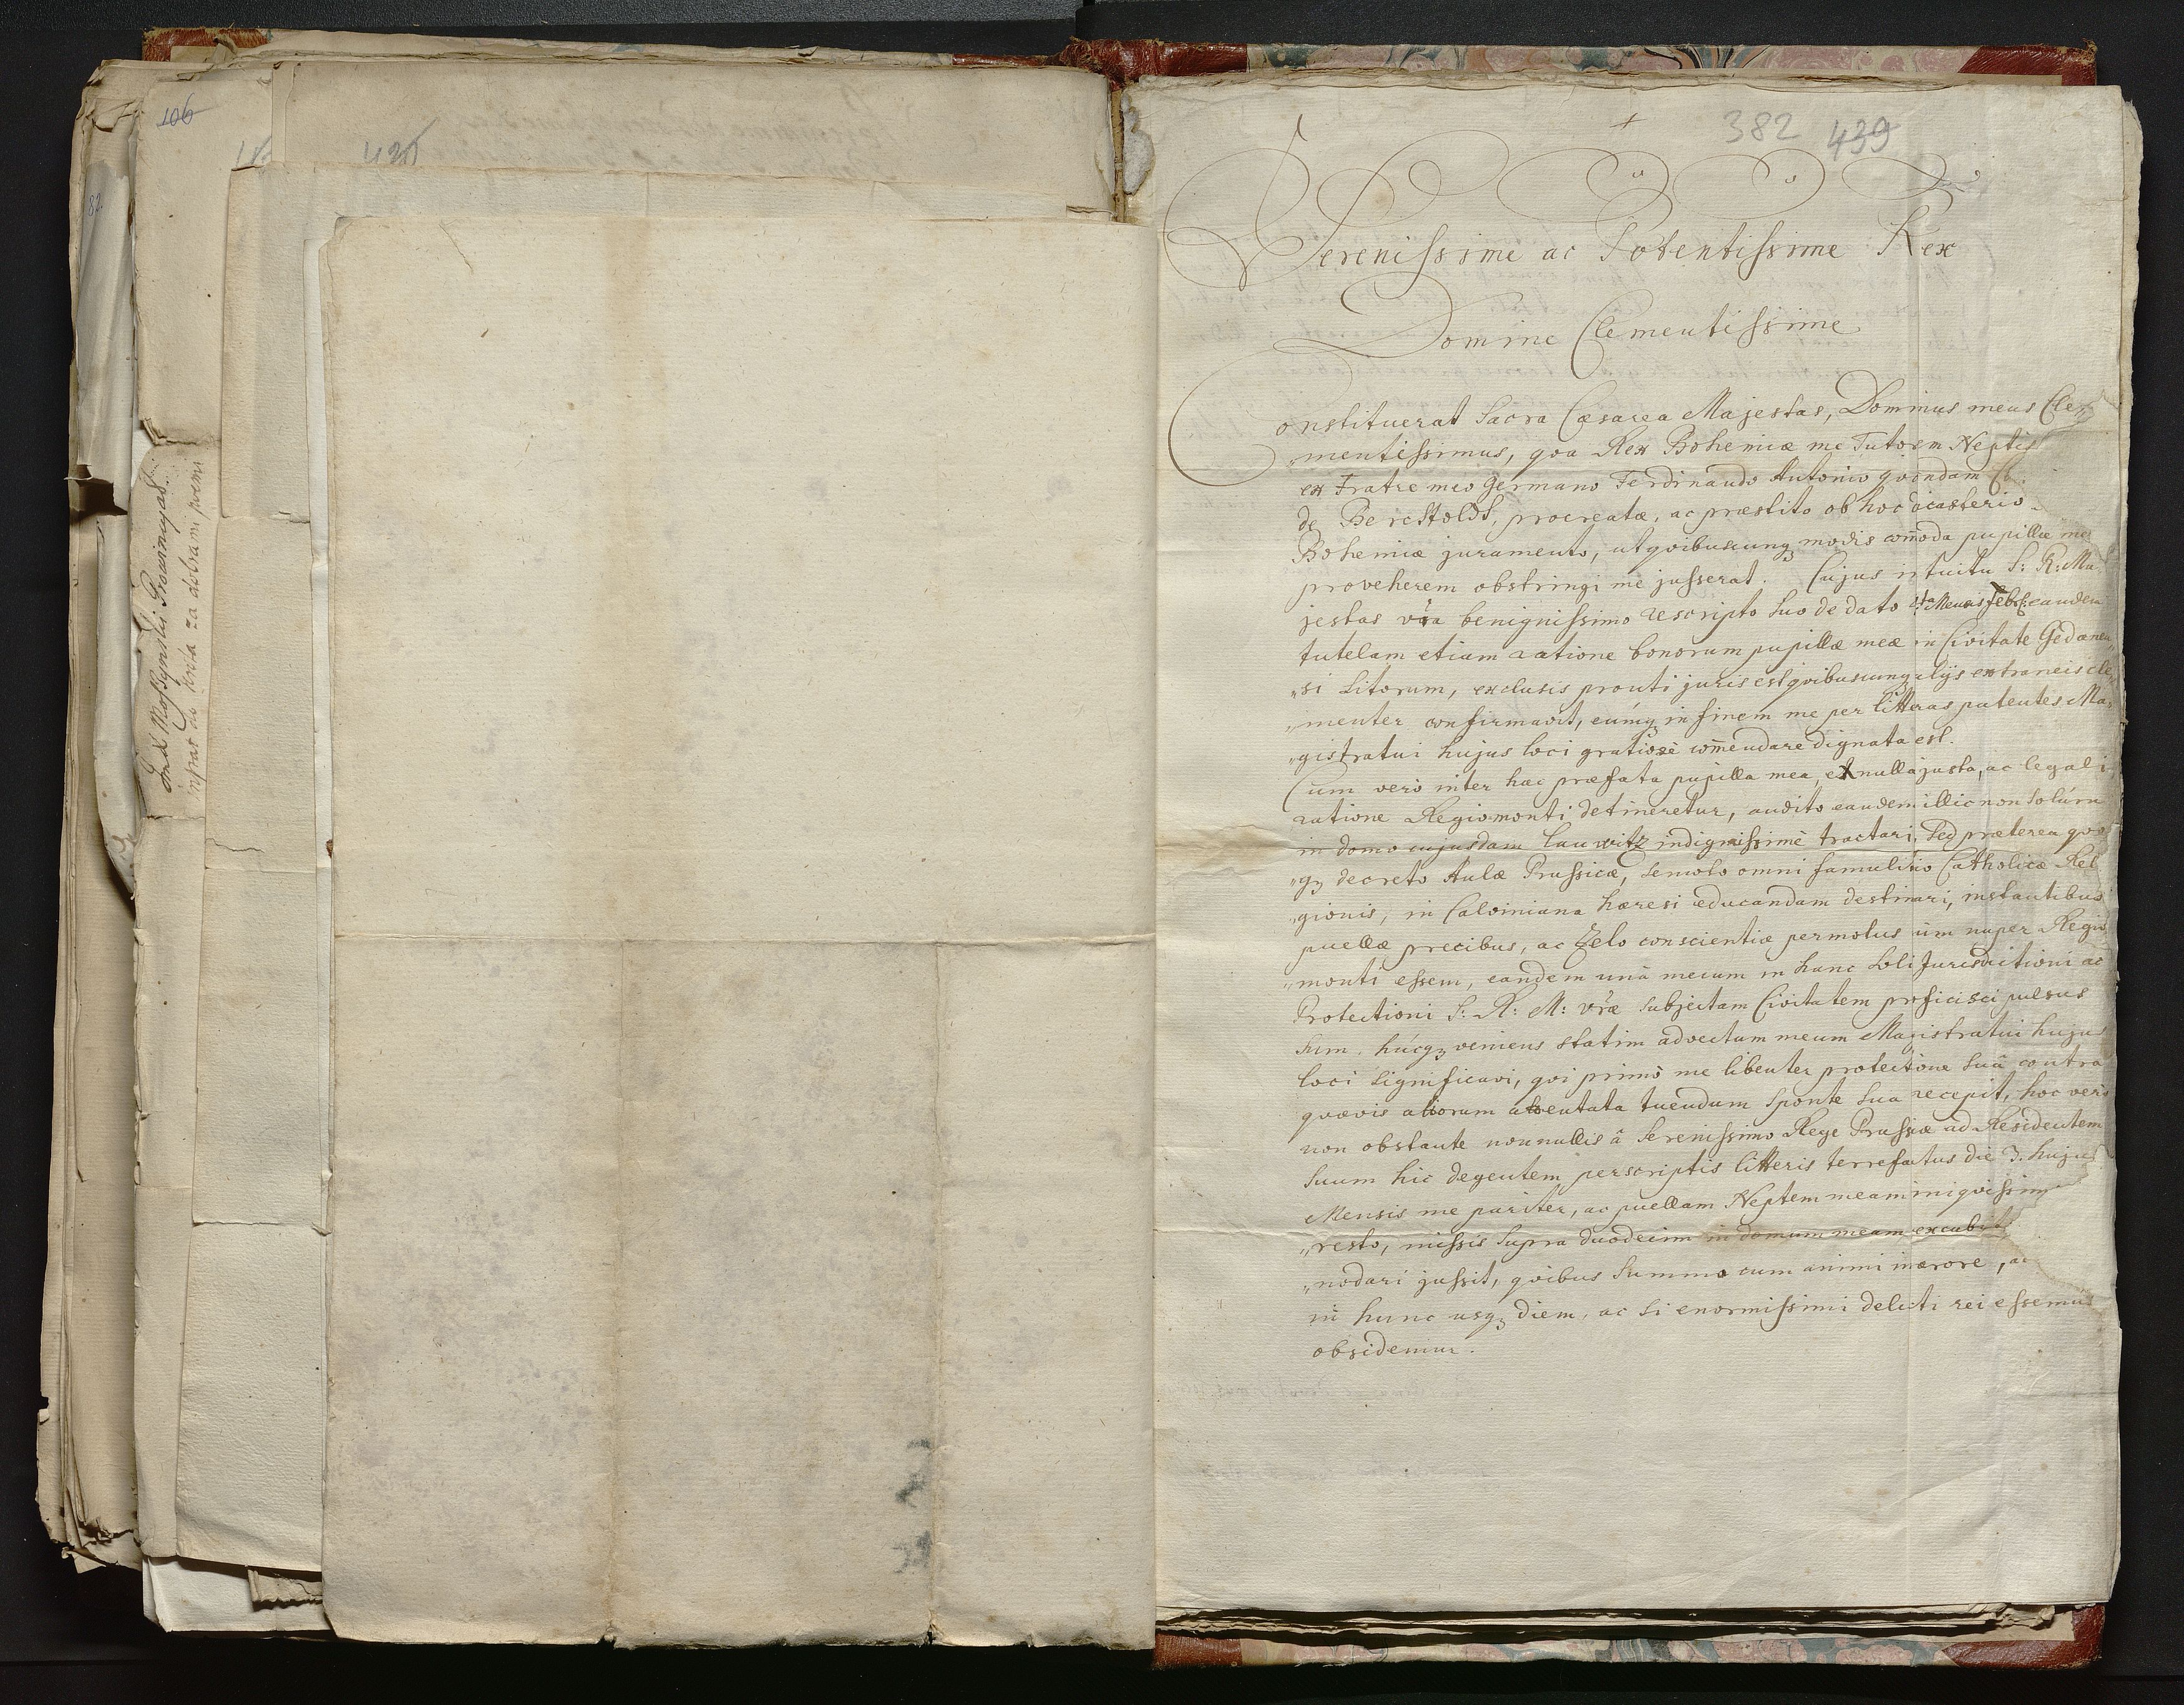 106
82.
382 439
Serenissime ac Potentissime Rex
Domine Clementissime
Constituerat Sacra Cæsarea Majestas, Dominus meus Cle„
„mentissimus, qva Rex Bohemiæ me Tutorem Neptis
ex Fratre meo Germano Ferdinando Antonio qvondam
de Berchtoldt, procreatæ, ac præstito ob hoc dicasterio
Bohemiæ juramento, ut qvibuscunqz modis com̄oda pupillæ meæ
proveherem obstringi me jusserat. Cujus intuitu S: R: Ma„
jestas vr̃a benignissimo rescripto suo de dato Mensis Febr: eandem
tutelam etiam ratione bonorum pupillæ meæ in Civitate Gedanen„
„si sitorum, exclusis prouti juris est qvibuscunqz alijs extraneis cle„
„menter confirmavit, eúmqz in finem me per litteras patentes Ma„
„gistratui hujus loci gratiosè com̄endare dignata est.
Cùm verò inter hac præfata pupilla mea, et nullâ justa, ac legali
ratione Regiomonti detineretur, audito eandem illic non solùm
in domo cujusdam Lauwitz indignissimè tractari, sed præterea qvo„
„qz decreto Aulæ Prussicæ, semoto omni famulitio Catholicæ Reli
„gionis, in Calviniana hæresi educandam destinari, instantibus
puellæ precibus, ac Zelo conscientiæ permotus cùm nuper Regio„
„monti essem, eandem unà mecum in hanc soli Jurisdictioni ac
Protectioni S: R: M: vr̃æ subjectam Civitatem proficisci passus
sum. húcqz veniens statim adventum meum Magistratui hujus
loci significavi, qvi primò me libenter protectione suâ contra
qvævis aliorum attentata tuendum sponte sua recepit, hoc verò
non obstante nonnullis â Serenissimo Rege Prussiæ ad Residentem
suum hic degentem perscriptis litteris terrefactus die 3. hujus
Mensis me pariter, ac puellam Neptem meam iniqvissim
„resto, missis supra duodecim in domum meam excubit
„nodari jussit, qvibus summo cum animi mærore, ac
in hunc usqz diem, ac si enormissimi delicti rei essemus
obsidemur.